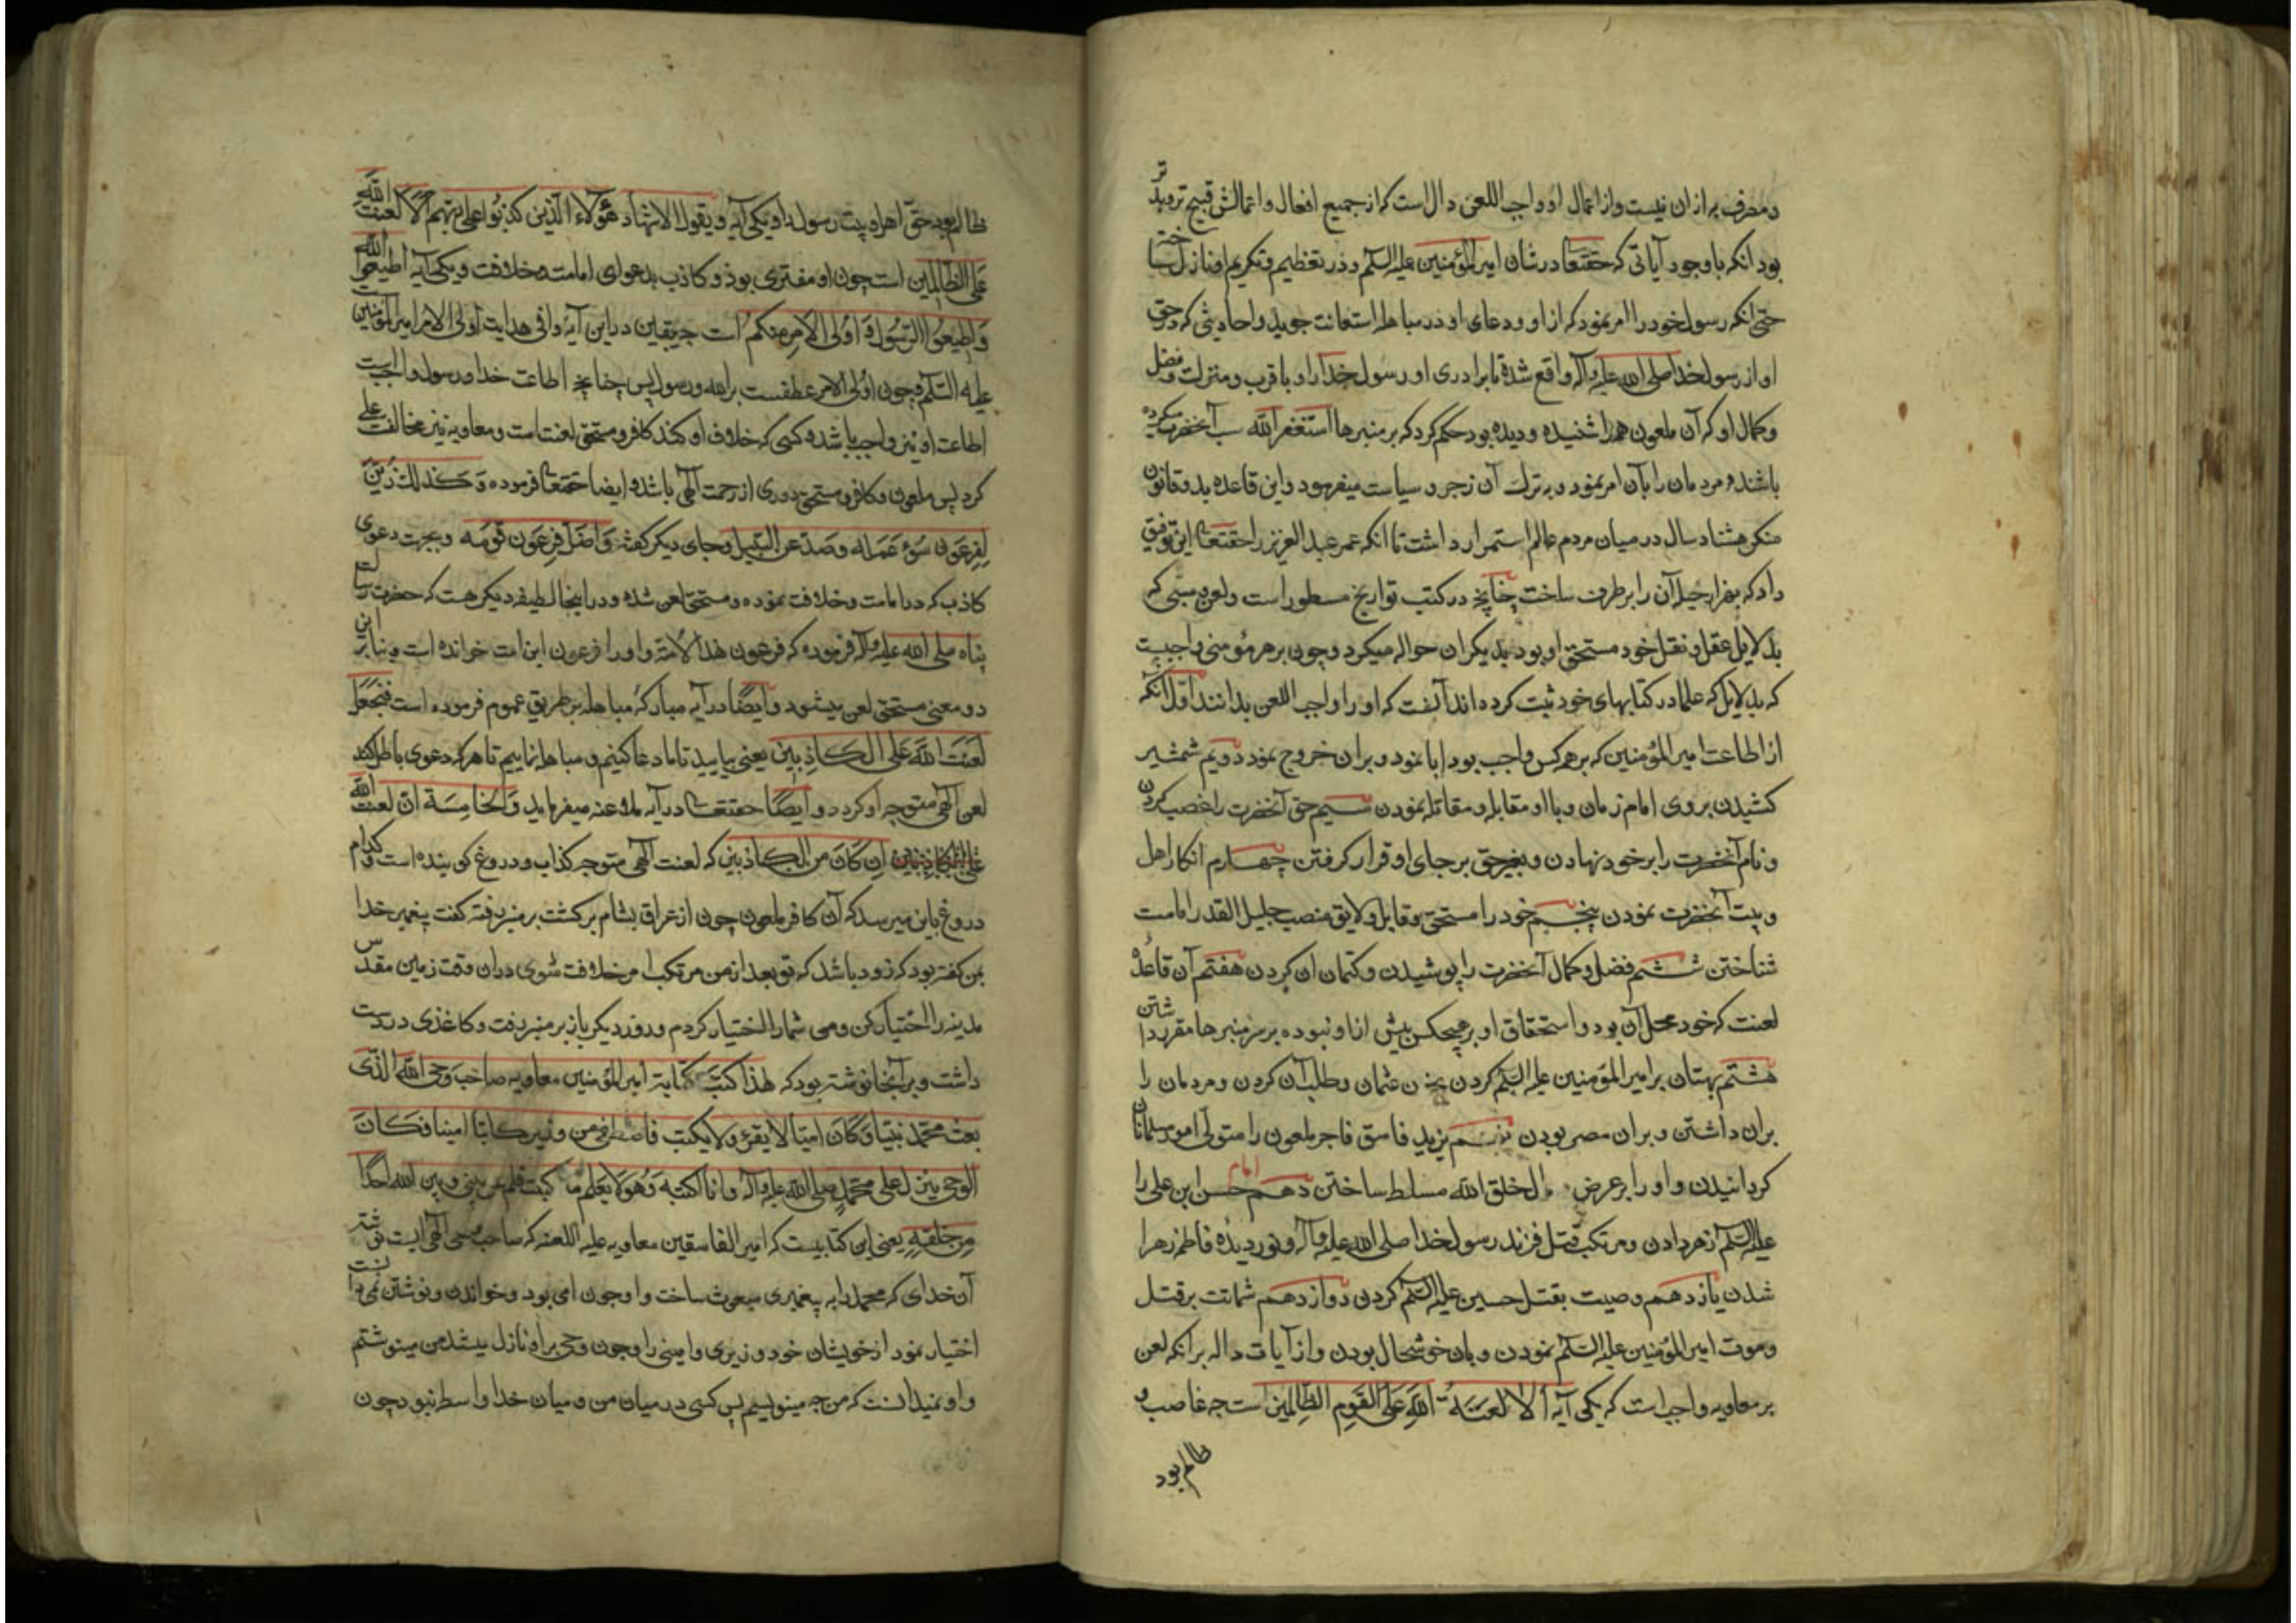 و مصرف به ازان نیست و از اعمال او واجب اللعن دال است که از جمیع افعال و اعمالش قبیح تر و بدتر
بود انکه با وجود آیاتی که حقتعا در شان امیر المؤمنین علیه السلم و در تعظیم و تکریم او نازل ساخته
حتی انکه رسول خود را امر نمود که از او و دعای او در مباهله استعانت جوید و احادیثی که در حق
او از رسول خدا صلی الله علیه وآله واقع شده با برادری او رسول خدا را و با قرب و منزلت و فضل
و کمال او که آن ملعون همه را شنیده و دیده بود حکم کرد که بر منبرها استغفر الله سب آنحضرت میکرده
باشند و مردمان را بآن امر نمود و به ترک آن زجر و سیاست میفرمود و این قاعده بد و قانون
منکر هشتاد سال در میان مردم عالم استمرار داشت تا انکه عمر عبد العزیز را حقتعا این توفیق
داد که بهزار حیله آن را بر طرف ساخت چنانچه در کتب تواریخ مسطور است و لعن و سبی که
بدلایل عقل و نقل خود مستحق او بود بدیکران حواله میکرد و چون بر هر مؤمنی واجبست
که بدلایل که علما در کتابهای خود ثبت کرده اند آنست که او را واجب اللعن بدانند اول آنکه
از اطاعت امیر المؤمنین که بر هر کس واجب بود ابا نمود و بران خروج نمود دویم شمشیر
کشیدن بروی امام زمان و با او مقابله و مقاتله نمودن سیم حق آنحضرت را غصب کردن
و نام آنحضرت را بر خود نهادن و بغیر حق بر جای او قرار کرفتن چهارم انکار اهل
و بیت آنحضرت نمودن پنجم خود را مستحق و قابل و لایق منصب جلیل القدر امامت
شناختن ششم فضل و کمال آنحضرت را پوشیدن و کتمان ان کردن هفتم آن قاعده
لعنت که خود محل آن بود و استحقاق او بر هیچکس بیش از او نبوده بر سر منبرها مقرر داشتن
هشتم بهتان بر امیر المؤمنین علیه السلم کردن بخون عثمان و طلب آن کردن و مردمان را
بران داشتن و بران مصر بودن نهم یزید فاسق فاجر ملعون را متولی امور مسلمانان
کردانیدن و او را بر عرض و الخلق الله مسلط ساختن دهم امام حسن ابن علی را
علیه السلم زهر دادن و مرتکب قتل فرزند رسول خدا صلی الله علیه وآله و نور دیده فاطمه زهرا
شدن یازدهم وصیت بقتل حسین علیه السلم کردن دوازدهم شماتت بر قتل
و موت امیر المؤمنین علیه السلم نمودن و بان خوشحال بودن و از آیات داله بر انکه لعن
بر معاویه واجب است که یکی آیه ألا لعنة الله علی القوم الظالمین است چه غاصب و
ظالم بود
ظالم بود حق اهل بیت رسول را و یکی آیه و یقول الاشهاد هؤلاء الذین کذبوا علی ربهم الا لعنت الله
علی الظالمین است چون او مفتری بود و کاذب بدعوای امامت و خلافت و یکی آیه اطیعوا الله
و اطیعوا الرسول و اولی الامر منکم است چه یقین در این آیه وافی هدایت اولی الامر امیر المؤمنین است
علیه السلم و چون اولی الامر عطفست بر الله و رسول پس چنانچه اطاعت خدا و رسول واجب است
اطاعت او نیز واجب باشد و کسی که خلاف او کند کافر و مستحق لعنت است و معاویه نیز مخالفت علی
کرد پس ملعون و کافر و مستحق دوری از رحمت الهی باشد و ایضا حقتعا فرموده و کذلک زین
لفرعون سوء عمله و صد عن السبیل و جای دیکر کفته و اضل فرعون قومه و بجرت دعوی
کاذب که در امامت و خلافت نموده و مستحق لعن شده و در اینجا لطیفه دیکر هست که حضرت رسالت
پناه صلی الله علیه وآله فرموده که فرعون هذا الامة و او را فرعون این امت خوانده است و بنابر این
دو معنی مستحق لعن میشود و ایضا در آیه مبارکه مباهله بر طریق عموم فرموده است فنجعل
لعنت الله علی الکاذبین یعنی بیایید تا ما دعا کنیم و مباهله نماییم تا هر که دعوی باطل کند
لعن الهی متوجه او کردد و ایضا حقتعا در آیه ملاعنه میفرماید و الخامسة ان لعنت الله
علی ان کان من الکاذبین که لعنت الهی متوجه کذاب و دروغ کوینده است و کدام
دروغ باین میرسد که آن کافر ملعون چون از عراق بشام برکشت بر منبر رفته کفت پیغمبر خدا
بمن کفته بود که زود باشد که تو بعد از من مرتکب امر خلافت شوی دران وقت زمین مقدس
مدینه را اختیار کن و من شما را اختیار کردم و روز دیکر باز بر منبر رفت و کاغذی در دست
داشت و بر آنجا نوشته بود که هذا کتب کتابة امیر المؤمنین معاویه صاحب وحی الله الذی
بعث محمد نبیا و کان امیا لا یقرء و لا یکتب فاصطفی من کاتبا امینا فکان
الوحی ینزل علی محمد صلی الله علیه وآله و انا اکتبه و هو لا یعلم ما کتبت فلم یکن بینی و بین الله احدا
من خلقه یعنی این کتابیست که امیر الفاسقین معاویه علیه اللعنه که صاحب وحی الهی است نوشته
آن خدای که محمد را به پیغمبری مبعوث ساخت و او چون امی بود و خواندن و نوشتن نمی دانست
اختیار نمود از خویشان خود وزیری و امینی را و چون وحی براو نازل میشد من مینوشتم
و او نمیدانست که من چه مینویسم پس کسی در میان من و میان خدا واسطه نبود چون